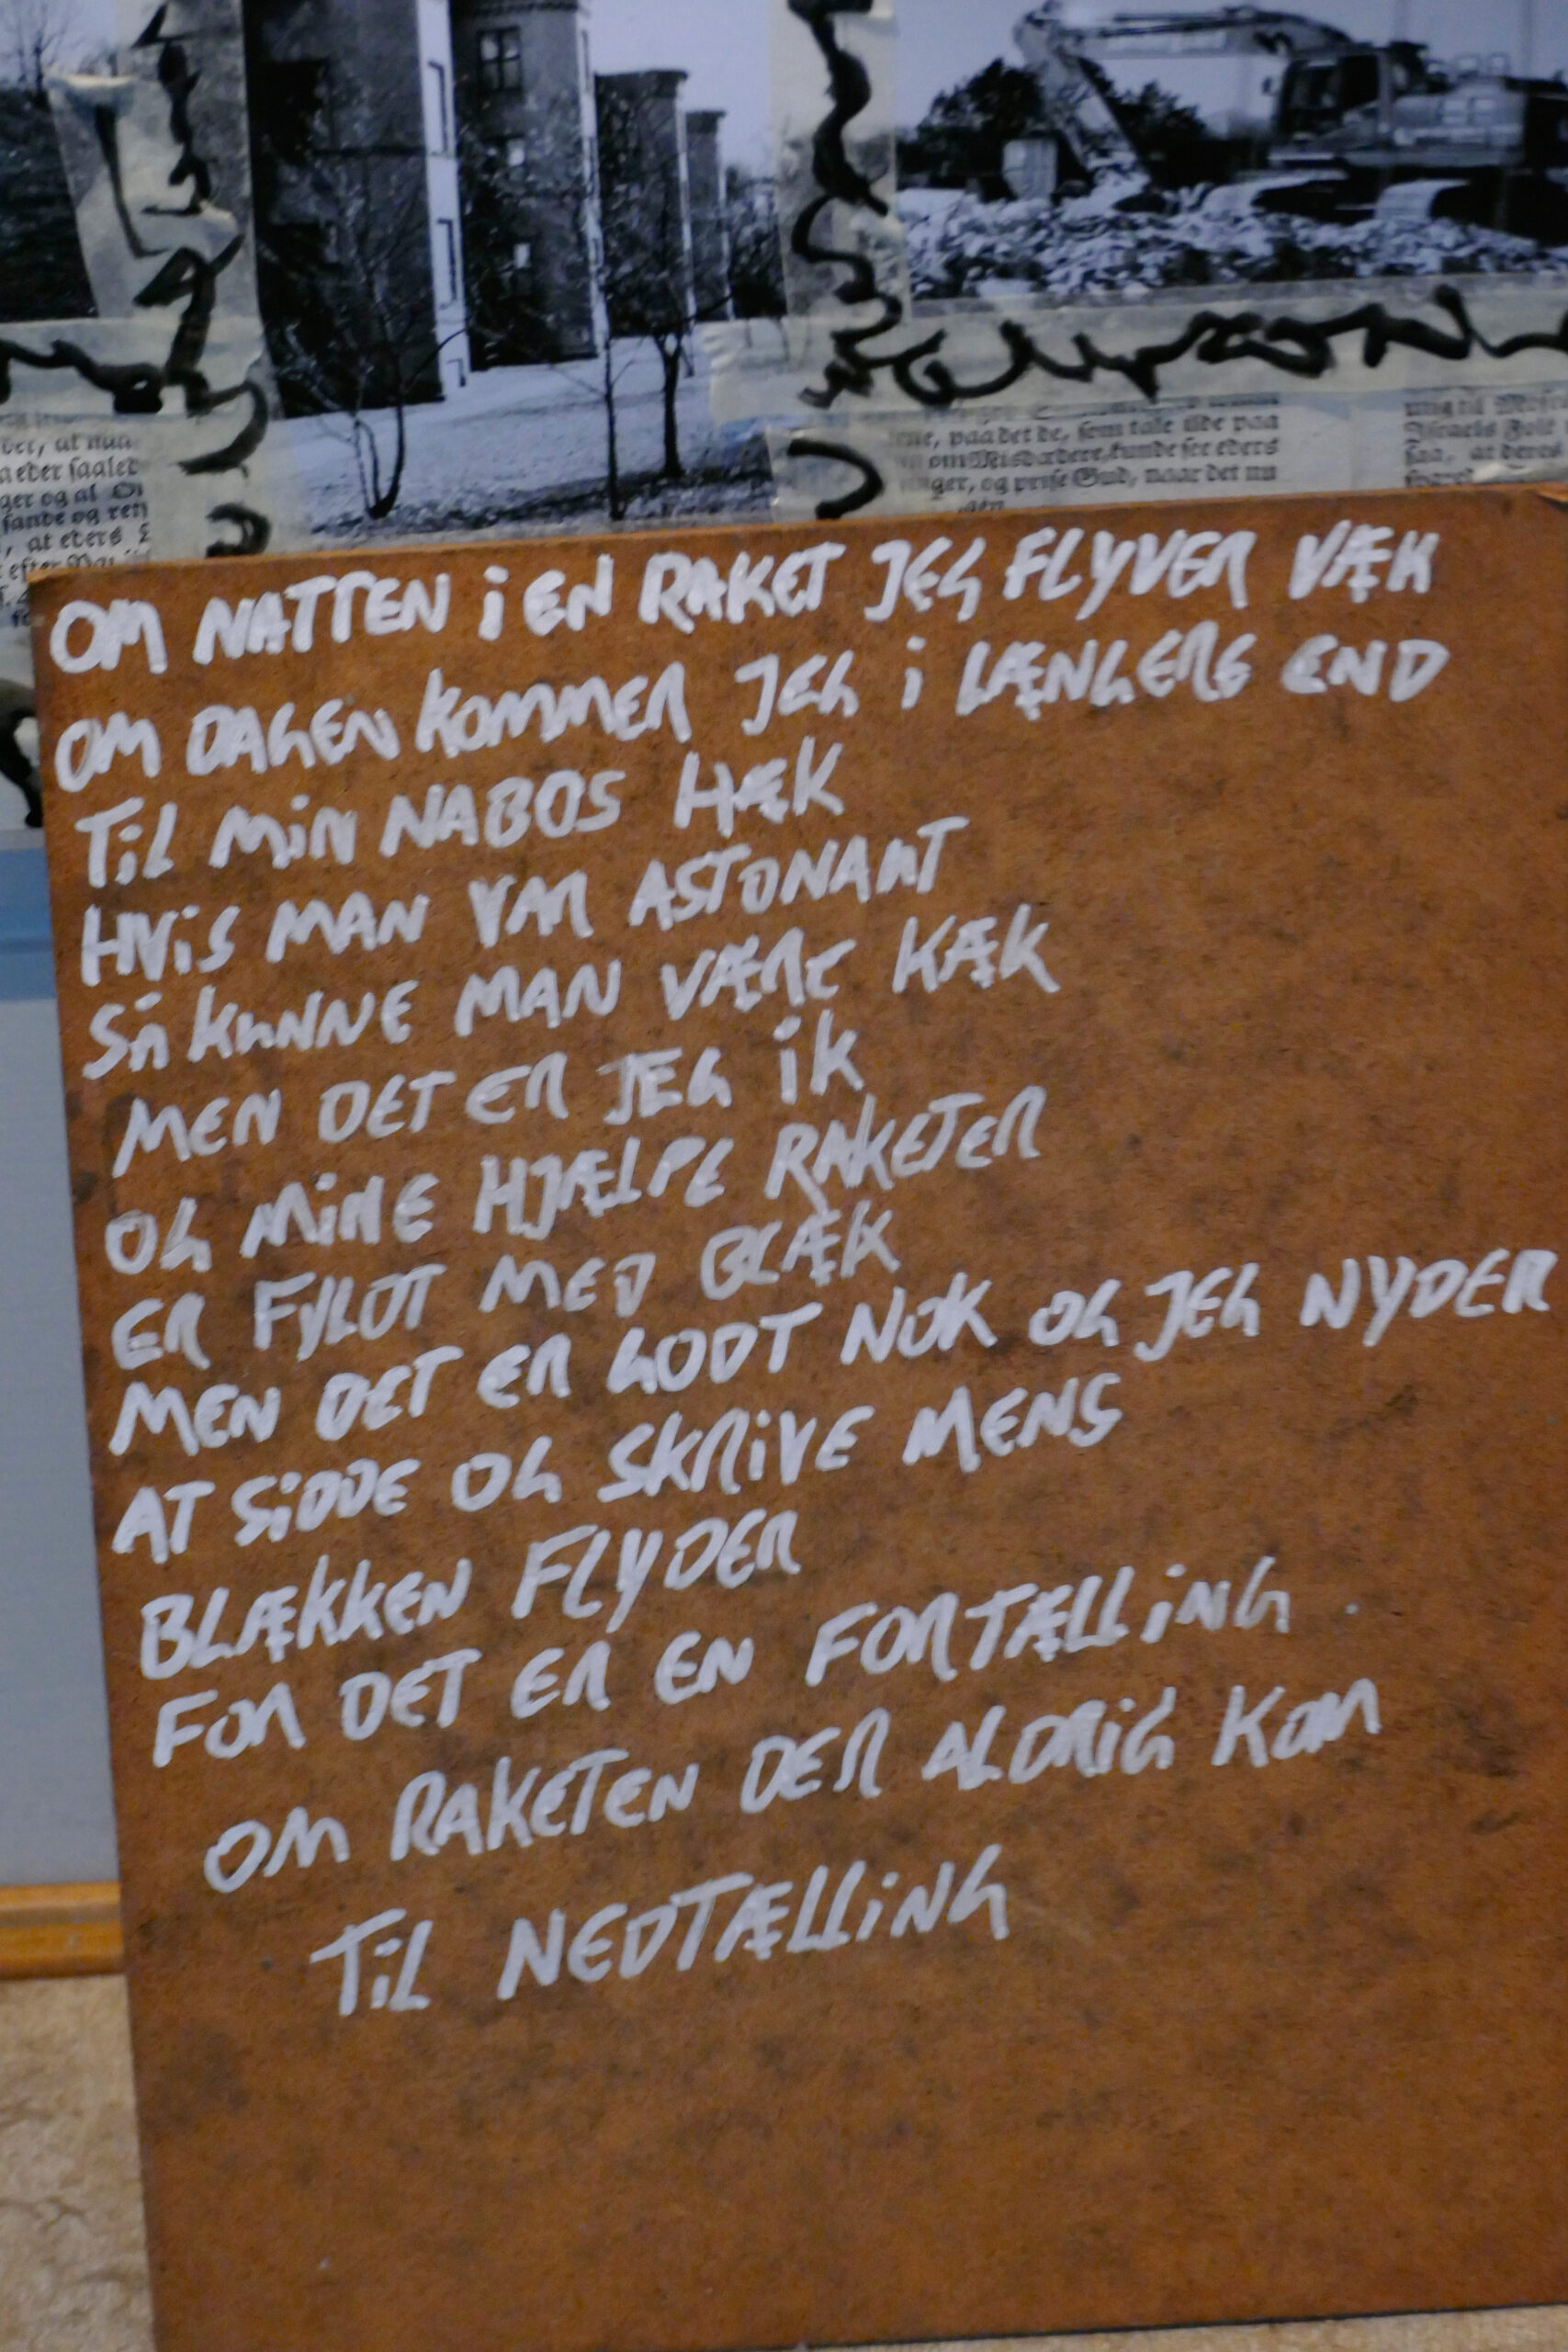 ber, at
a eder saaled
ger og al
sande og
, at eders
efter
ne, paa det de, som tale ilde paa
om Misdædere, kunde see eders
ger, og prise Gud, naar det nu
Israels Folk
saa, at deres
OM NATTEN i EN RAKET JEG FLYVER VÆK
OM DAGEN KOMMER JEG i LÆNGERE END
TiL MiN NABOS HÆK
HViS MAN VAR ASTONAUT
SÅ KUNNE MAN VÆRE KÆK
MEN DET ER JEG iK
OG MiNE HJÆLPE RAKETER
ER FYLDT MED BLÆK
MEN DET ER GODT NOK OG JEG NYDER
AT SiDDE OG SKRiVE MENS
BLÆKKEN FLYDER
FOR DET ER EN FORTÆLLiNG
OM RAKETEN DER ALDRiG KOM
TiL NEDTÆLLiNG